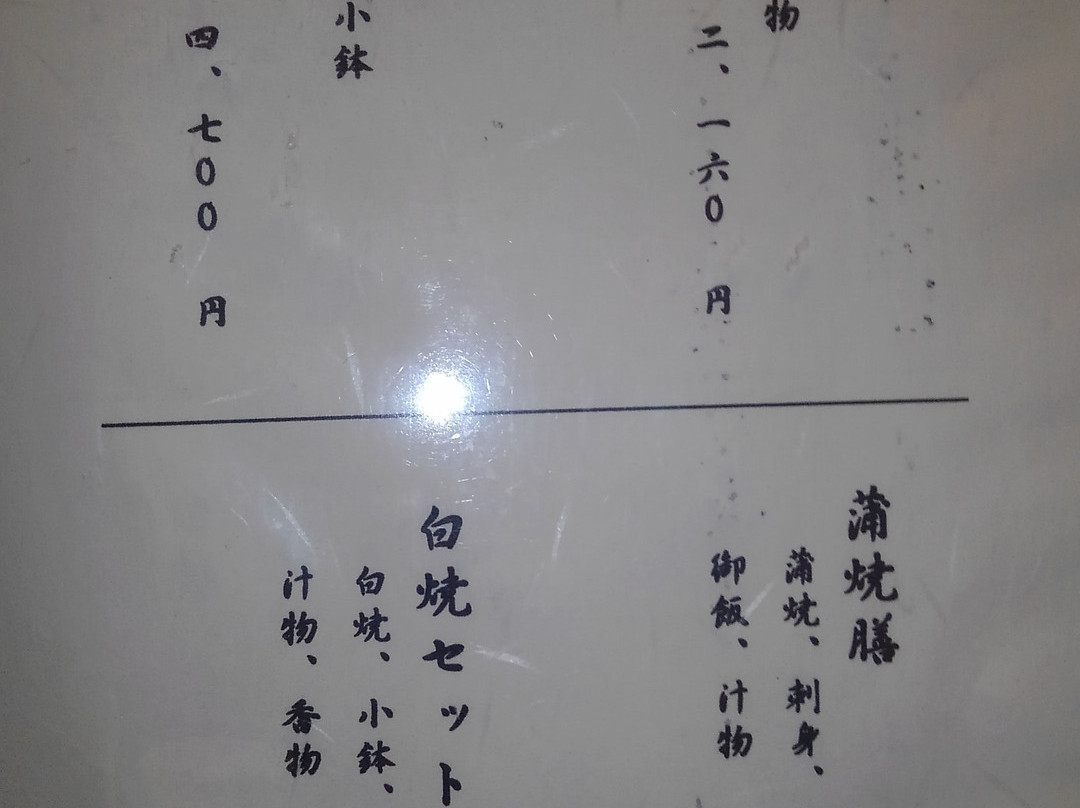 物
二、一六〇円
小鉢
四、七〇〇円
蒲焼膳
蒲焼、刺身、
御飯、汁物
白焼セット
白焼、小鉢、
汁物、香物